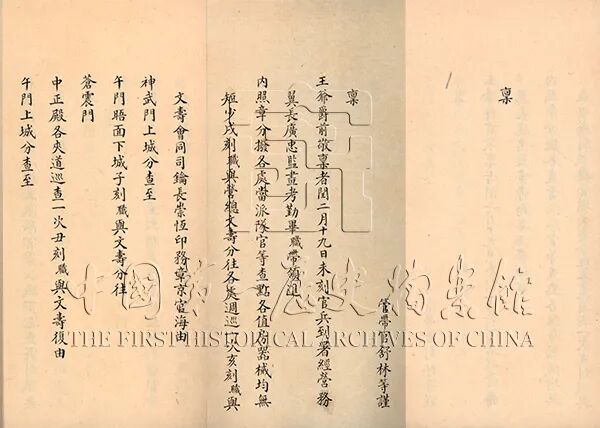 禀
管帶官舒林等謹
禀
王爺爵前敬禀者閏二月十九日未刻官兵到署經營務
翼長廣忠監畫考勤畢職帶領進
內照章分撥各處當派隊官等查點各值房器械均無
短少戌刻職與營總文壽分往各處週巡一次亥刻職與
文壽會同司鑰長崇恆印務章京宦海由
神武門上城分查至
午門晤面下城子刻職與文壽分往
蒼震門
中正殿各夾道巡查一次丑刻職與文壽復由
午門上城分查至
中國第一歷史檔案館
THE FIRST HISTORICAL ARCHIVES OF CHINA